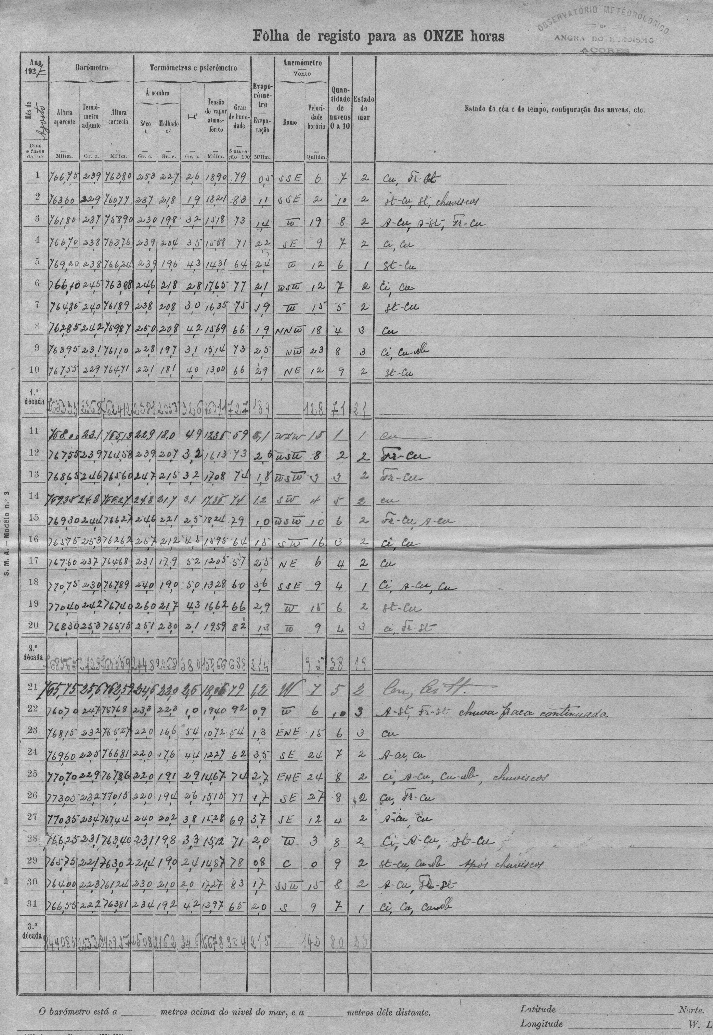 OBSERVATÓRIO METEOROLÓGICO
ANGRA DO HEROISMO
AÇORES
Fôlha de registo para as ONZE horas
Barómetro Termómetros e psicrómetro Anemómetro
Vento
Altura aparente Termómetro adjunto Altura correcta Á sombra Sêco t Molhado t' t—t' Tensão do vapor atmosférico Grau de humidade Evaporómetro Evaporação Rumo Velocidade horária Quantidade de nuvens 0 a 10 Estado do mar Estado do céu e do tempo, configuração das nuvens, etc.
1 766,75 23,9 763,80 25,3 22,7 2,6 18,90 79 0,5 SSE 6 7 2 Cu, Fr-St
2 763,60 22,9 760,77 23,7 21,8 1,9 18,21 83 1,1 SSE 2 10 2 St-Cu, St, chuviscos
3 761,80 23,7 758,90 23,0 19,8 3,2 15,18 73 1,4 W 19 8 2 A-Cu, A-St, Fr-Cu
4 766,70 23,8 763,76 23,9 20,4 3,5 71 2,2 SE 9 7 2 Ci, Cu
5 769,20 23,8 766,24 23,9 19,6 4,3 14,31 64 2,4 W 12 6 1 St-Cu
6 766,10 24,5 763,08 24,6 21,8 2,8 17,65 77 2,1 WSW 12 7 2 Ci, Cu
7 764,85 24,0 761,89 23,8 20,8 3,0 16,35 75 1,9 W 15 5 2 St-Cu
8 762,85 24,2 759,87 25,0 20,8 4,2 15,69 66 1,9 NNW 18 4 3 Cu
9 763,95 23,1 761,10 22,8 19,7 3,1 15,14 73 2,5 NW 23 8 3 Ci, Cu-Nb
10 767,55 22,9 764,71 22,1 18,1 4,0 13,00 66 2,9 NE 12 9 2 St-Cu
1.ª década 128 71 21
11 22,9 18,0 4,9 59 WNW 15 1 1 Cu
12 767,55 23,9 764,58 23,9 20,7 3,2 16,13 73 2,6 WSW 8 2 2 Fr-Cu
13 768,65 24,6 765,60 24,7 21,5 3,2 17,08 74 1,8 WSW 3 3 2 Fr-Cu
14 24,8 24,8 21,7 3,1 74 1,2 SW 4 5 2 Cu
15 769,30 24,4 766,27 24,6 22,1 2,5 18,24 79 1,0 WSW 10 6 2 Fr-Cu, A-Cu
16 765,75 25,3 762,62 25,7 21,2 4,5 15,95 64 1,5 SW 16 3 2 Ci, Cu
17 767,60 23,7 764,68 23,1 17,9 5,2 12,05 57 2,5 NE 6 4 2 Cu
18 770,75 23,0 767,89 24,0 19,0 5,0 13,28 60 3,6 SSE 9 4 1 Ci, A-Cu, Cu
19 770,40 24,2 767,40 26,0 21,7 4,3 16,62 66 2,9 W 15 6 2 St-Cu
20 768,30 25,3 765,15 25,1 23,0 2,1 19,59 82 1,3 W 9 4 3 Ci, Fr-St
2.ª década 95 38 19
21 765,75 25,6 762,59 24,6 22,0 2,6 79 W 7 5 2
22 760,70 24,7 757,68 23,0 22,0 1,0 19,40 92 0,9 W 6 10 3 A-St, Fr-St chuva fraca continuada
23 768,15 23,2 765,27 22,0 16,6 5,4 10,72 54 1,3 ENE 15 6 3 Cu
24 769,60 22,5 766,81 22,0 17,6 4,4 12,27 62 3,5 SE 24 7 2 A-Cu, Cu
25 770,70 22,9 767,86 22,0 19,1 2,9 14,67 74 2,7 ENE 24 8 2 Ci, A-Cu, Cu-Nb, chuviscos
26 773,05 23,2 770,15 22,0 19,4 2,6 15,15 77 1,7 SE 27 8 2 Cu, Fr-Cu
27 770,35 23,4 767,44 24,0 20,2 3,8 15,28 69 3,7 SE 12 4 2 A-Cu, Cu
28 766,25 23,1 763,40 23,1 19,8 3,3 15,12 71 2,0 W 3 8 2 Ci, A-Cu, St-Cu
29 765,75 22,1 763,02 21,4 19,0 2,4 14,87 78 0,8 C 0 9 2 St-Cu, Cu-Nb Após chuviscos
30 764,00 22,3 761,24 23,0 21,0 2,0 17,27 83 1,7 SSW 15 8 2 A-Cu, Fr-St
31 766,55 22,2 763,81 23,4 19,2 4,2 13,97 65 2,0 S 9 7 1 Ci, Cu, Cu-Nb
3.ª década 80
S. M. A. — Modêlo n.º 3
O barómetro está a ______ metros acima do nível do mar, e a ______ metros dêle distante.
Latitude ______ Norte.
Longitude ______ W.